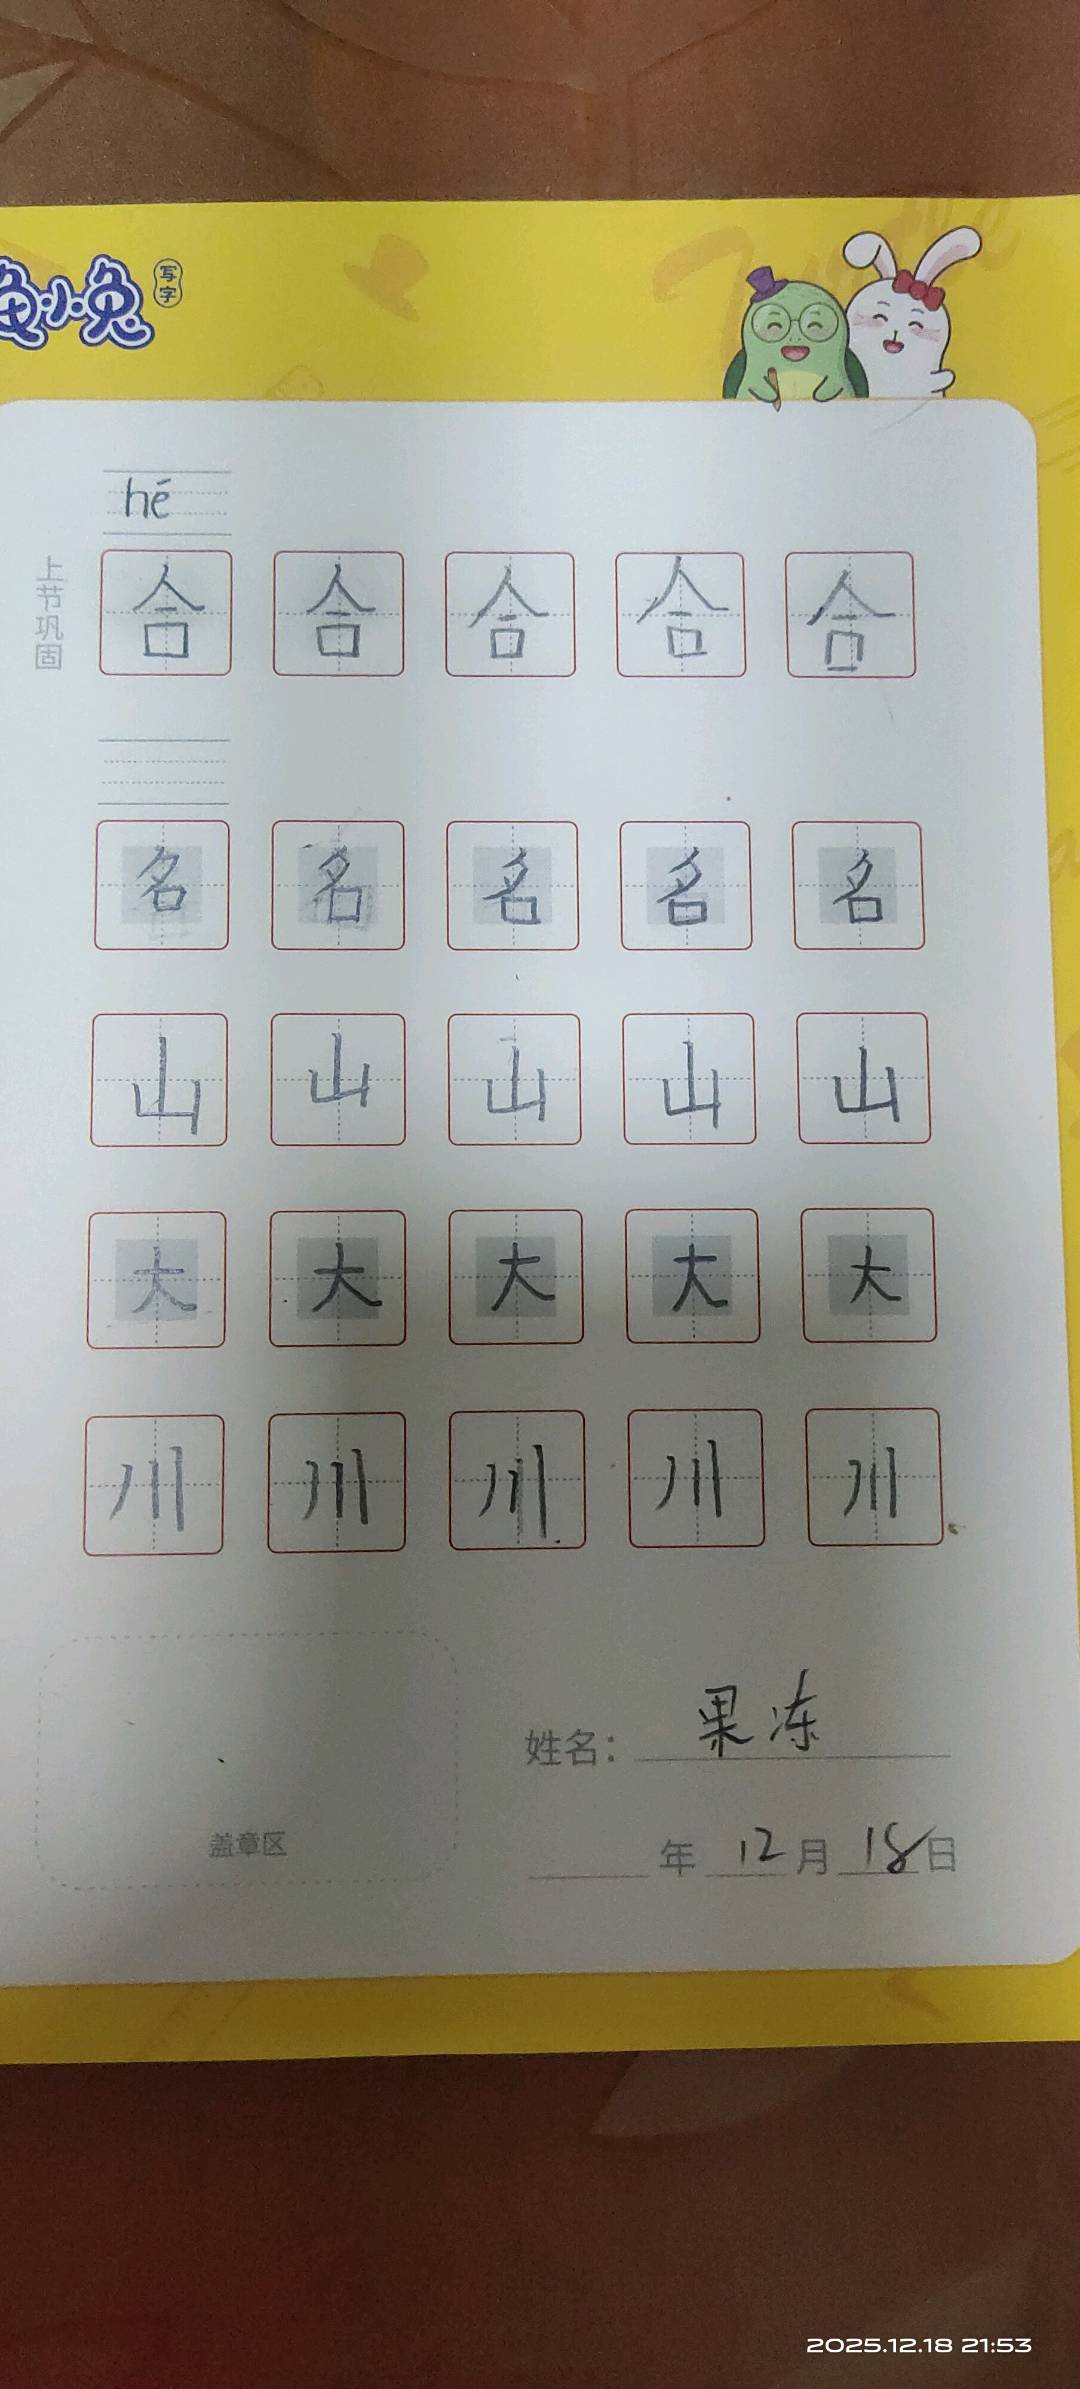 兔小兔 写字
hé
上节巩固
合 合 合 合 合
名 名 名 名 名
山 山 山 山 山
大 大 大 大 大
川 川 川 川 川
姓名： 果冻
盖章区
年 12 月 18 日
2025.12.18 21:53